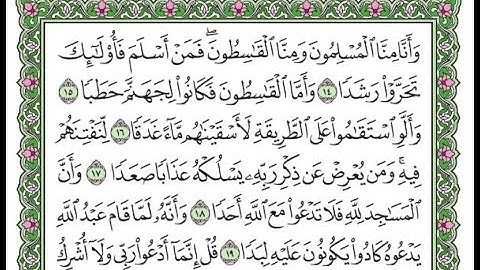 وَأَنَّا مِنَّا ٱلْمُسْلِمُونَ وَمِنَّا ٱلْقَـٰسِطُونَ ۖ فَمَنْ أَسْلَمَ فَأُو۟لَـٰٓئِكَ
تَحَرَّوْا۟ رَشَدًا ١٤ وَأَمَّا ٱلْقَـٰسِطُونَ فَكَانُوا۟ لِجَهَنَّمَ حَطَبًا ١٥
وَأَلَّوِ ٱسْتَقَـٰمُوا۟ عَلَى ٱلطَّرِيقَةِ لَأَسْقَيْنَـٰهُم مَّآءً غَدَقًا ١٦ لِّنَفْتِنَهُمْ
فِيهِ ۚ وَمَن يُعْرِضْ عَن ذِكْرِ رَبِّهِۦ يَسْلُكْهُ عَذَابًا صَعَدًا ١٧ وَأَنَّ
ٱلْمَسَـٰجِدَ لِلَّهِ فَلَا تَدْعُوا۟ مَعَ ٱللَّهِ أَحَدًا ١٨ وَأَنَّهُۥ لَمَّا قَامَ عَبْدُ ٱللَّهِ
يَدْعُوهُ كَادُوا۟ يَكُونُونَ عَلَيْهِ لِبَدًا ١٩ قُلْ إِنَّمَآ أَدْعُوا۟ رَبِّى وَلَآ أُشْرِكُ